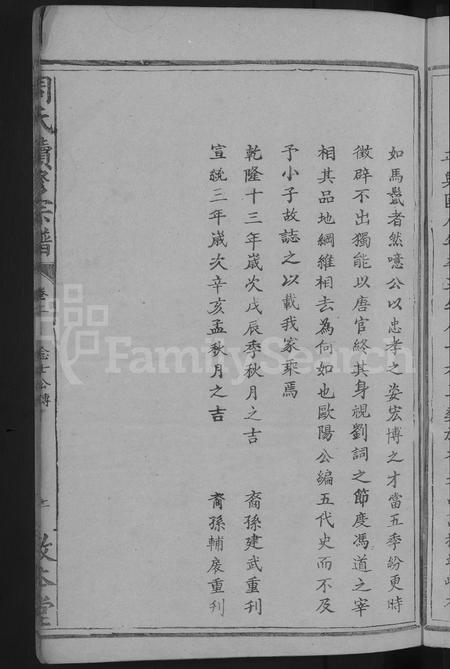 如馬鬣者然噫公以忠孝之姿宏博之才當五季紛更時
徵辟不出獨能以唐官終其身視劉詞之節度馮道之宰
相其品地綱維相去為何如也歐陽公編五代史而不及
予小子故誌之以載我家乘焉
乾隆十三年歲次戊辰季秋月之吉 裔孫建武重刊
宣統三年歲次辛亥孟秋月之吉 裔孫輔扆重刊
周氏續修宗譜
卷
公傳
敦本堂
FamilySearch